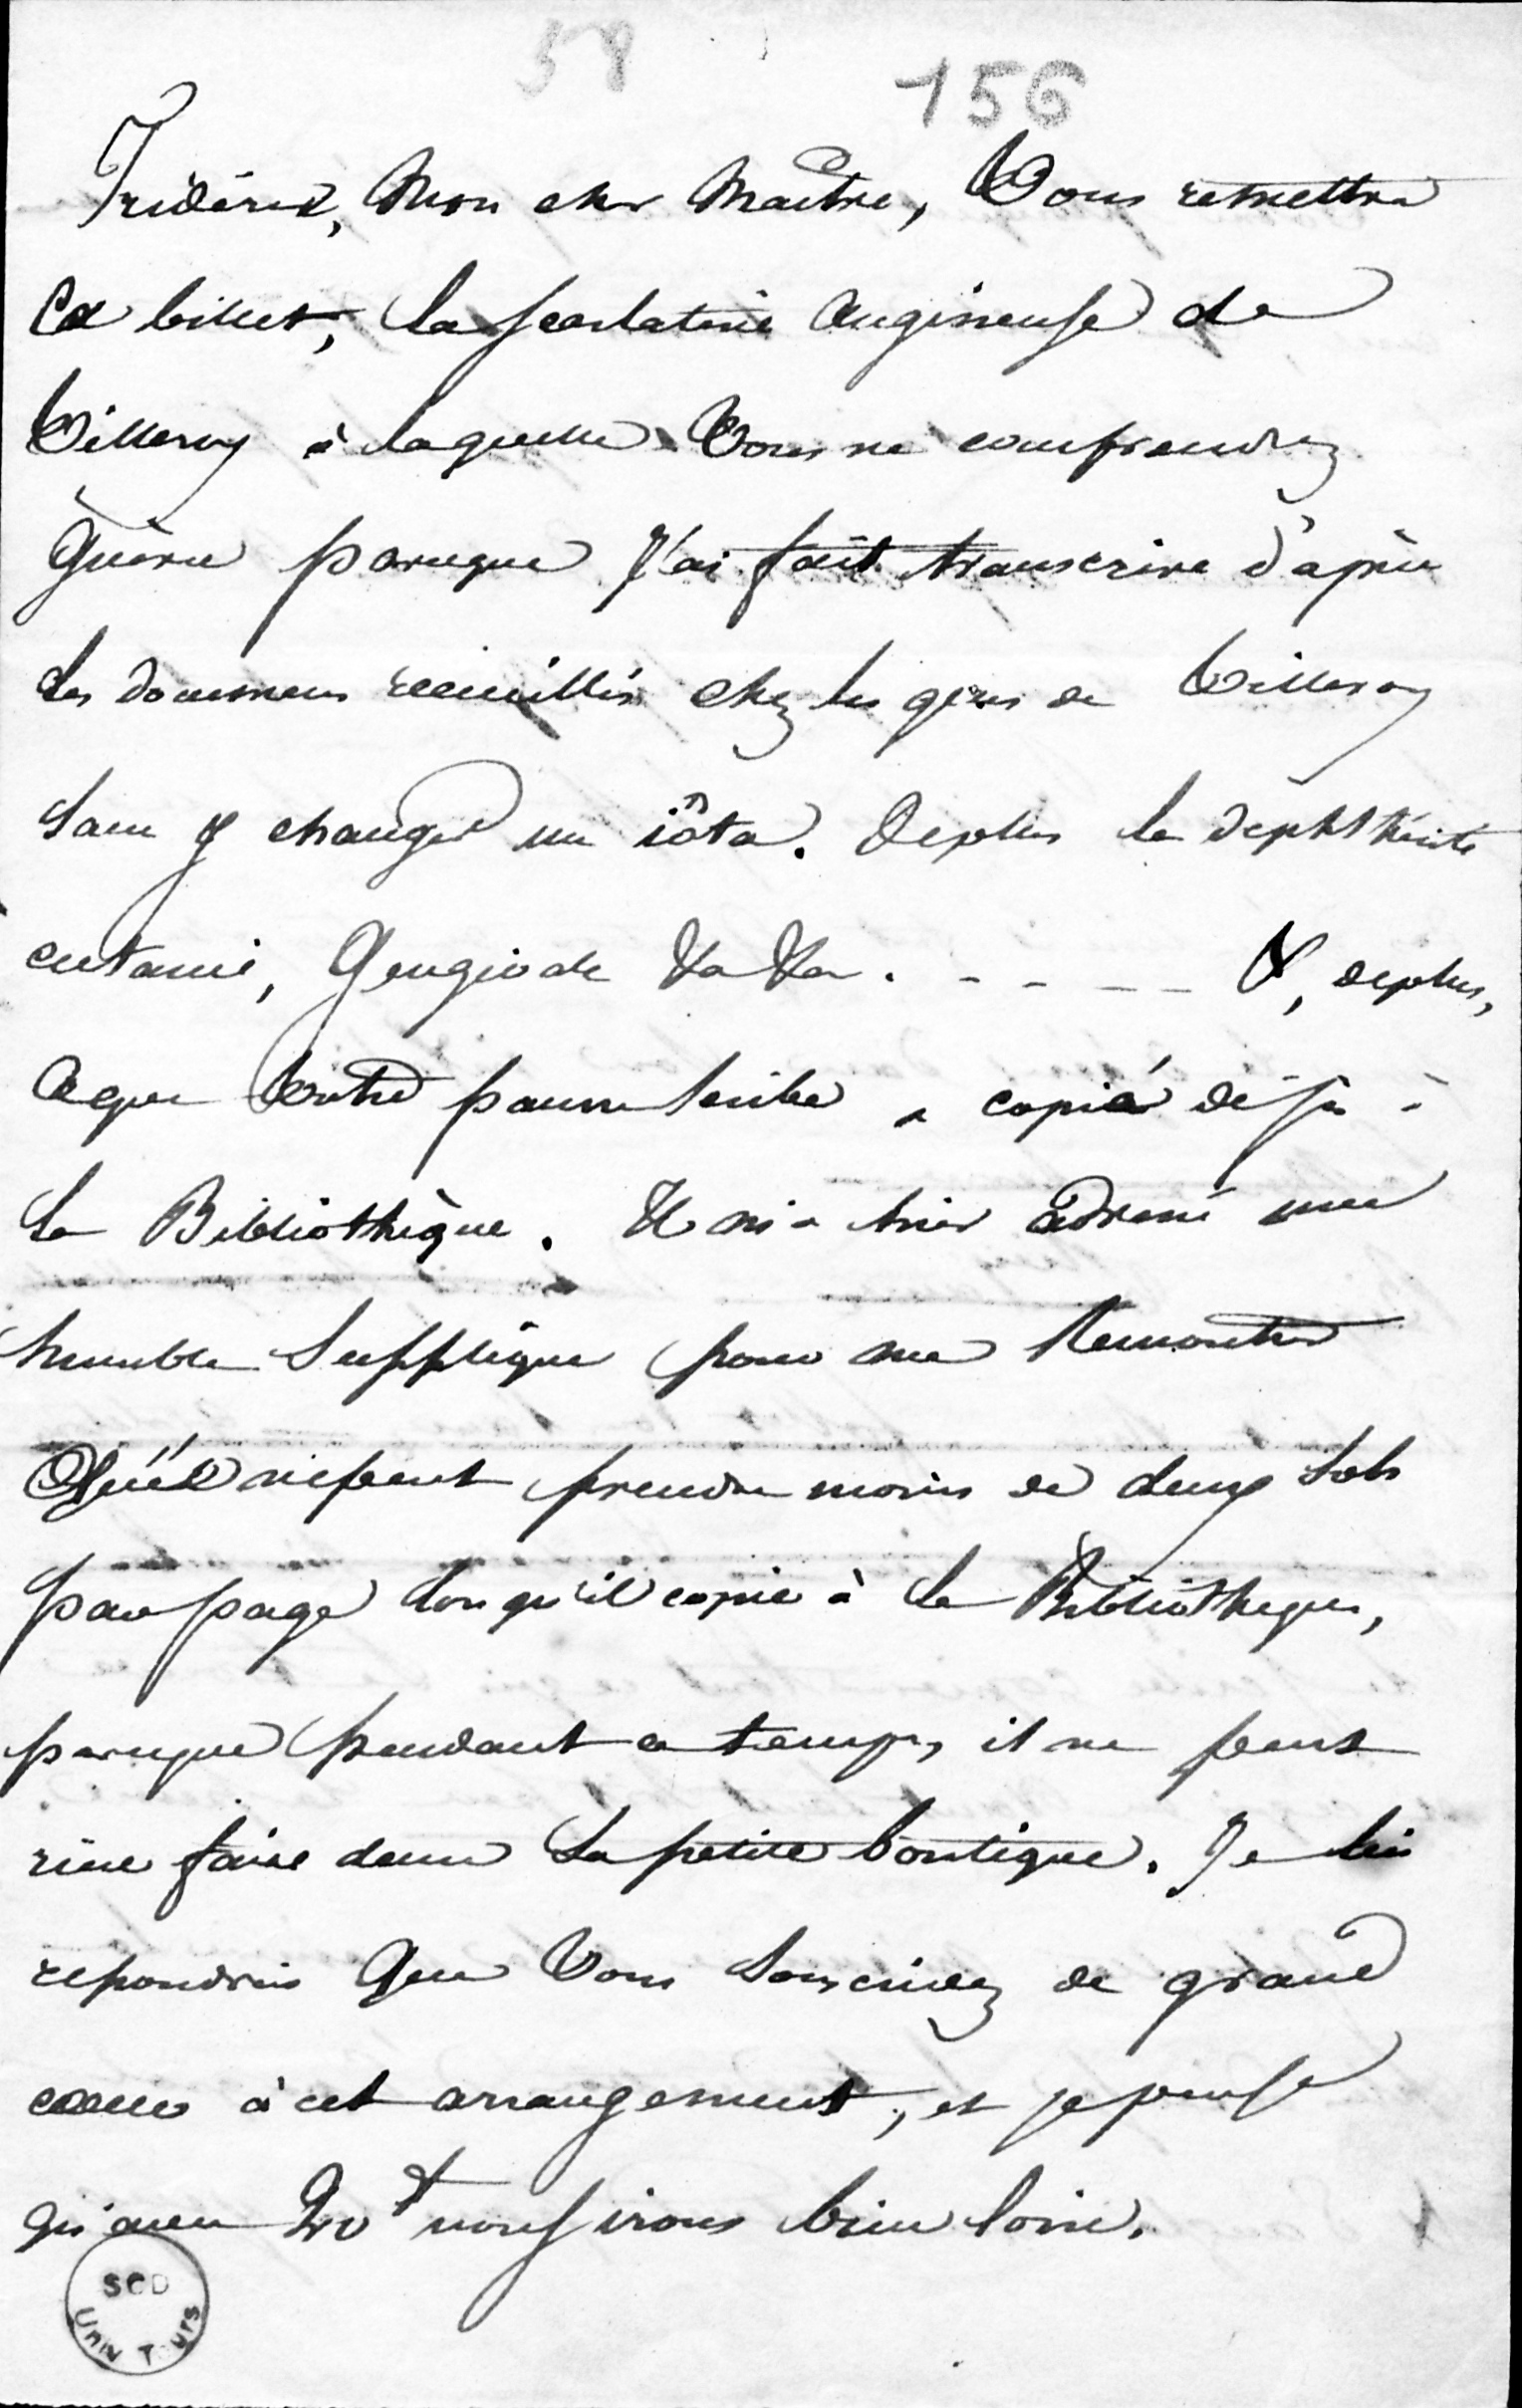 58
156
Frédéric, Mon cher Maitre, Vous remettra
Ce billet, la scarlatine angineuse de
Villeroy à laquelle Vous ne comprendrez
Guère parceque J'ai fait transcrire d'après
des documens recueillis chez les gens de Villeroy
sans y changer un iôta. Deplus la diphthérite
cutanée, Gengivale &a &a. - - - - - &, deplus,
ce que Votre pauvre Scribe a copié déjà à
la Bibliothèque. Il m'a hier adressé une
humble supplique pour me Remontrer
Qu'il ne peut prendre moins de deux sols
par page lorsqu'il copie à la Bibliothèque,
parceque pendant ce temps, il ne peut
rien faire dans sa petite boutique. Je lui
répondrai Que Vous souscrivez de grand
coeur à cet arrangement, et je pense
qu'avec 20 f nous irons bien loin.
SCD
Univ Tours